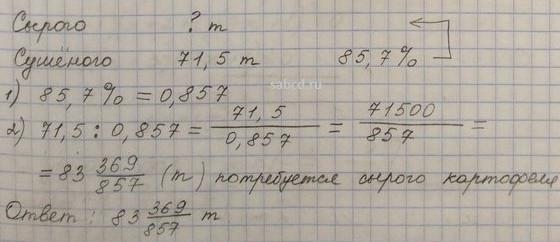 Сырого ? т
Сушёного 71,5 т 85,7%
sabcd.ru
1) 85,7% = 0,857
2) 71,5 : 0,857 = 71,5/0,857 = 71500/857 =
= 83 369/857 (т) потребуется сырого картофеля
Ответ: 83 369/857 т